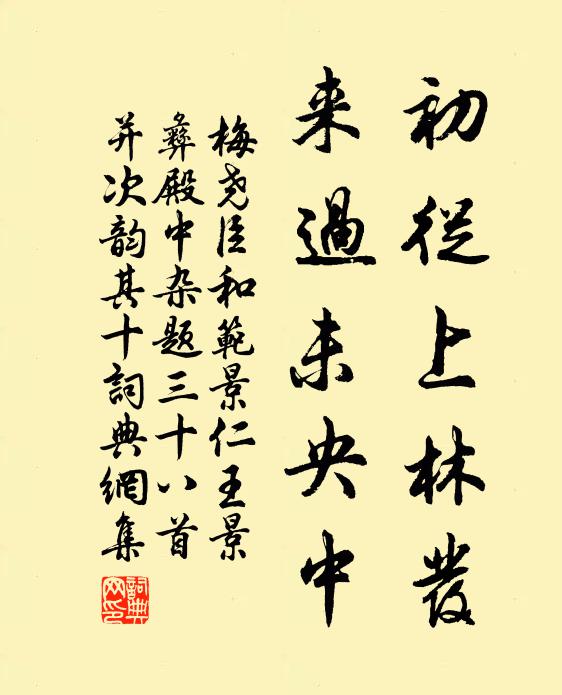 初從上林發
来過未央中
梅尧臣和範景仁王景
彝殿中杂题三十八首
并次韵其十詞典網集